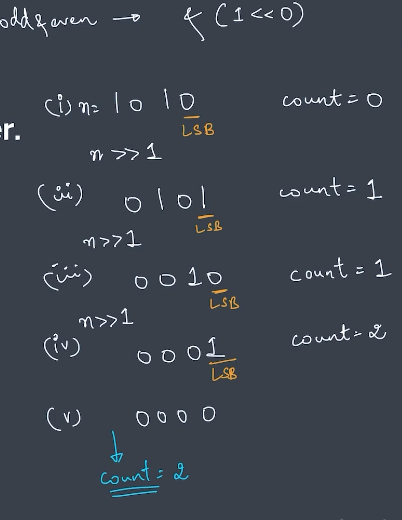 odd & even → & (1<<0)
(i) n= 1 0 1 0 count = 0
er.
LSB
n >> 1
(ii) 0 1 0 1 count = 1
LSB
n>>1
(iii) 0 0 1 0 count = 1
LSB
n>>1
(iv) 0 0 0 1 count = 2
LSB
(v) 0 0 0 0
↓
count = 2